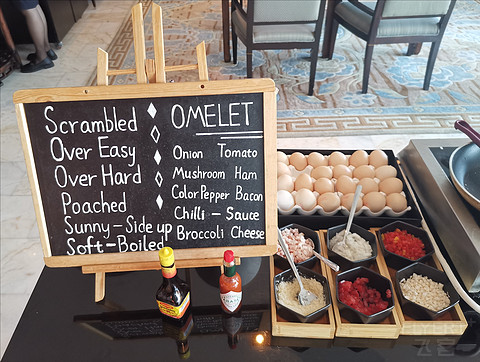 Scrambled
Over Easy
Over Hard
Poached
Sunny-Side up
Soft-Boiled
OMELET
Onion Tomato
Mushroom Ham
Color Pepper Bacon
Chilli-Sauce
Broccoli Cheese